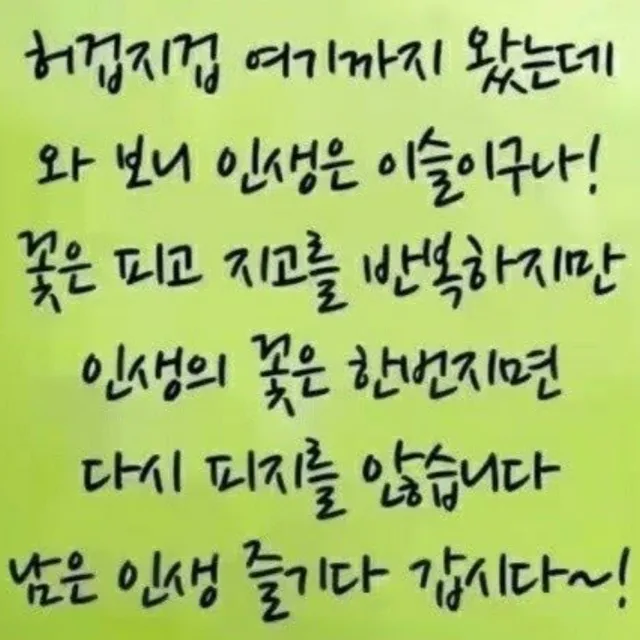 허겁지겁 여기까지 왔는데
와 보니 인생은 이슬이구나!
꽃은 피고 지고를 반복하지만
인생의 꽃은 한번지면
다시 피지를 않습니다
남은 인생 즐기다 갑시다~!